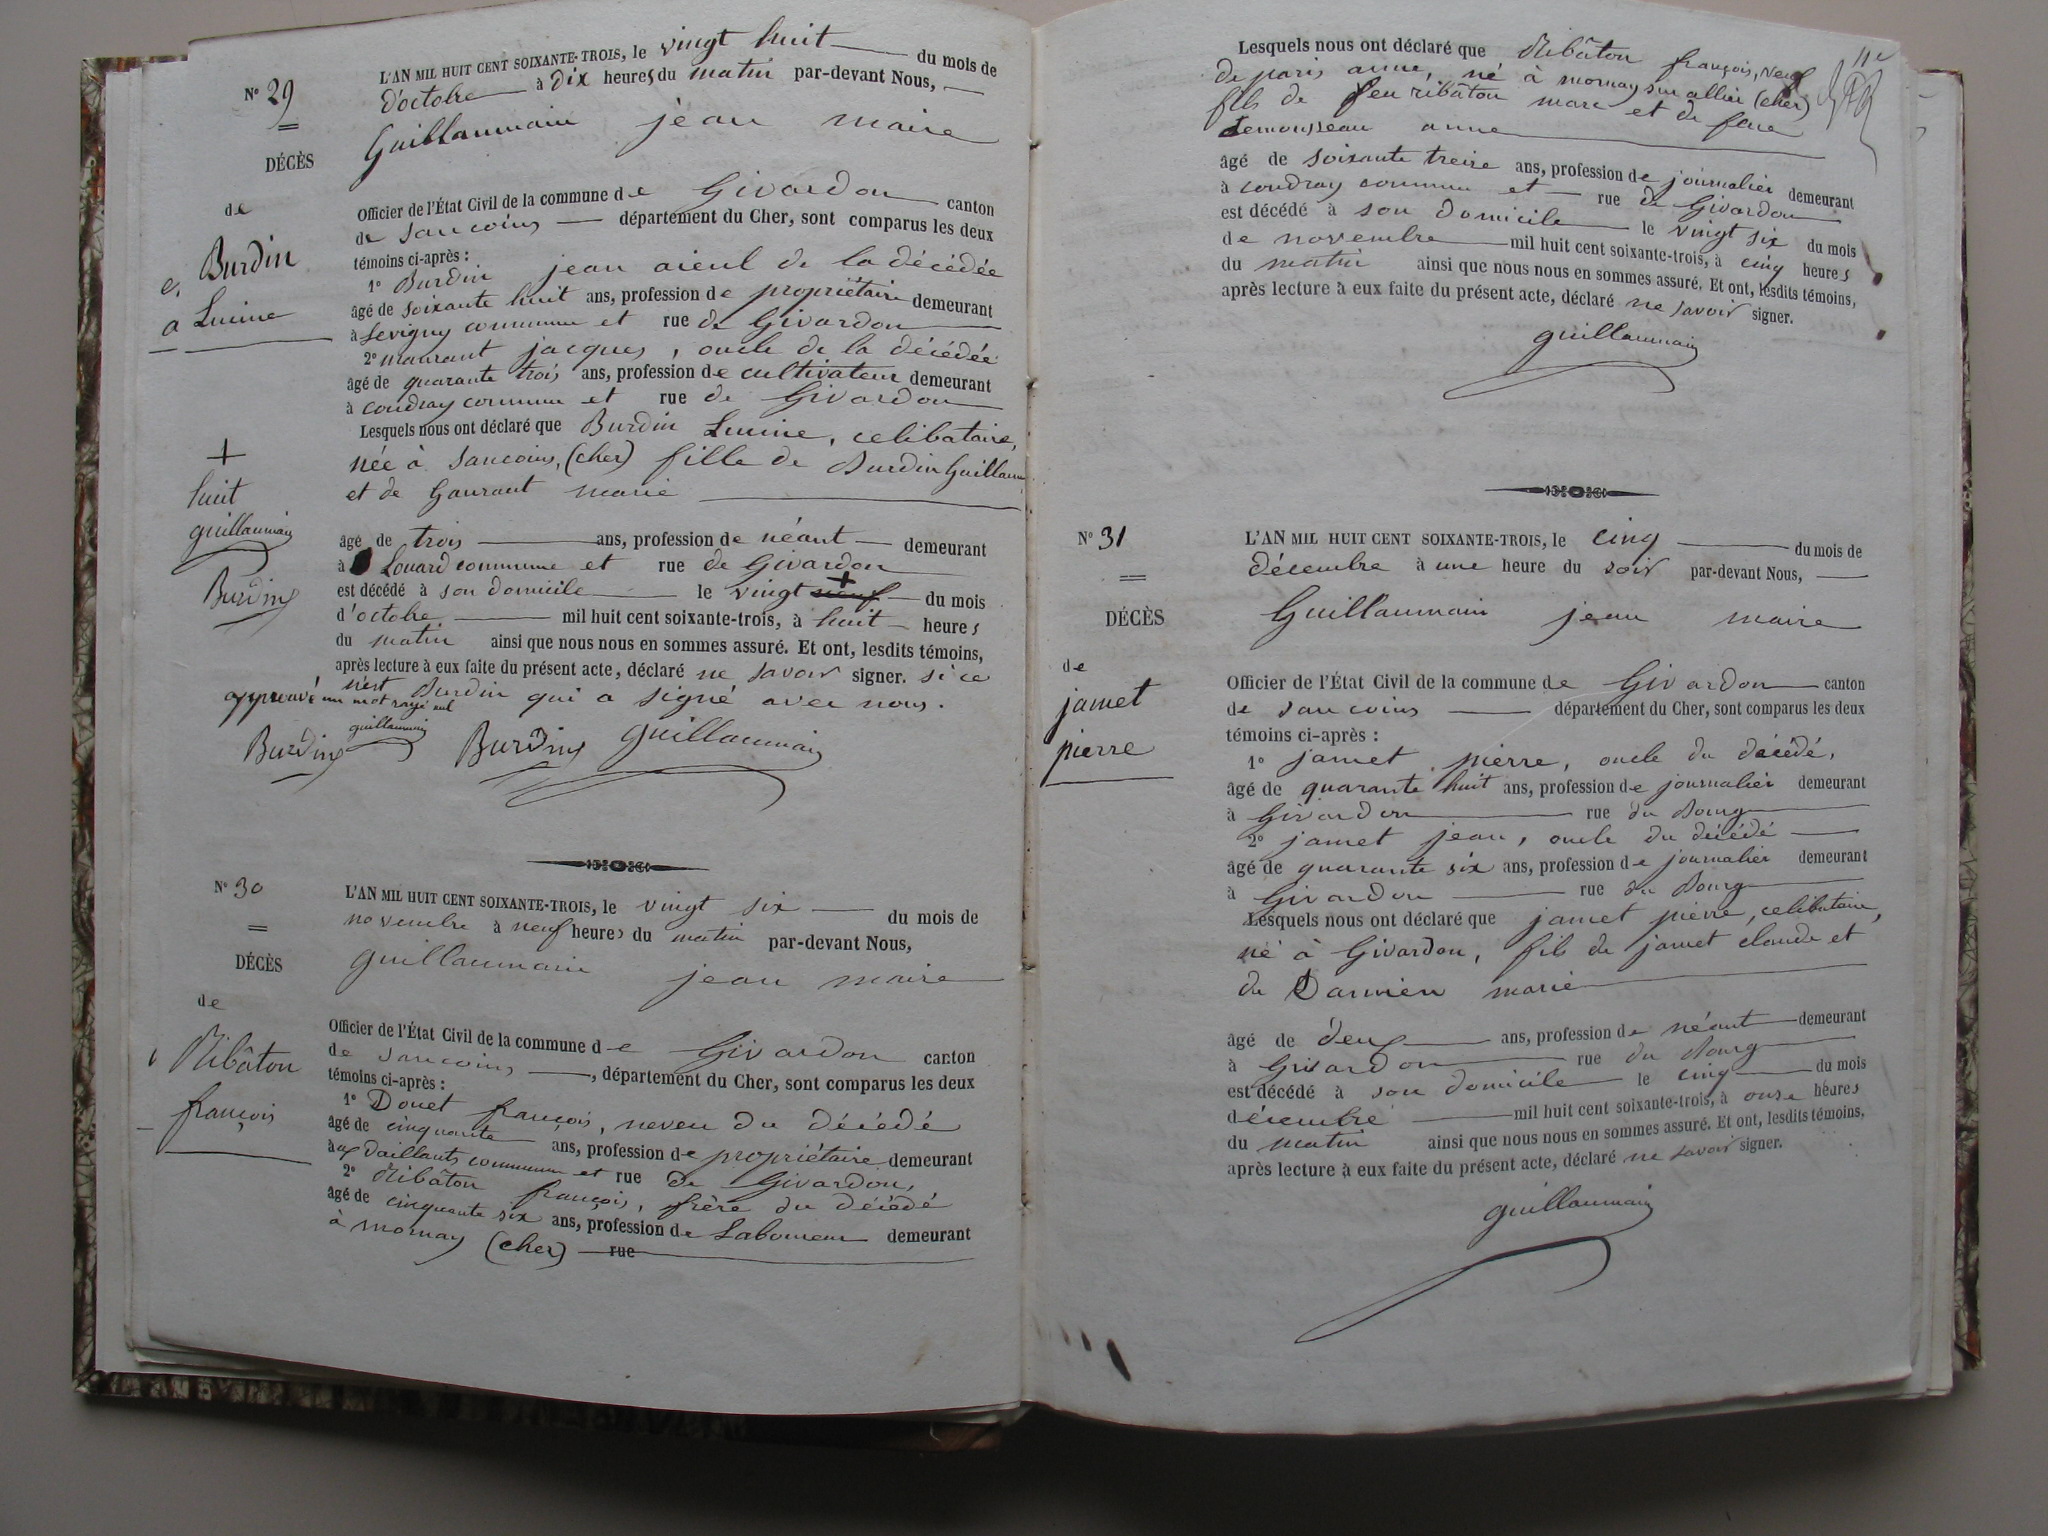 N° 29
DÉCÈS
de
Burdin
Lucine
+
huit
guillaumain
Burdin
L'AN MIL HUIT CENT SOIXANTE-TROIS, le vingt huit du mois de
d'octobre à dix heures du matin par-devant Nous,
Guillaumain jean maire
Officier de l'État Civil de la commune de Givardon canton
de sancoins département du Cher, sont comparus les deux
témoins ci-après :
1° Burdin jean aieul de la décédée
âgé de soixante huit ans, profession de propriétaire demeurant
à Sevigny commune et rue de Givardon
2° maurant jacques, oncle de la décédée
âgé de quarante trois ans, profession de cultivateur demeurant
à coudray commune et rue de Givardon
Lesquels nous ont déclaré que Burdin Lucine, celibataire,
née à sancoins, (cher) fille de Burdin Guillaum
et de Gaurant marie
âgé de trois ans, profession de néant demeurant
à Louard commune et rue de Givardon
est décédé à son domicile le vingt + neuf du mois
d'octobre mil huit cent soixante-trois, à huit heures
du matin ainsi que nous nous en sommes assuré. Et ont, lesdits témoins,
après lecture à eux faite du présent acte, déclaré ne savoir signer. si ce
n'est Burdin qui a signé avec nous.
approuvé un mot rayé nul
guillaumain
Burdin Burdin guillaumain
N° 30
DÉCÈS
de
Ribâton
françois
L'AN MIL HUIT CENT SOIXANTE-TROIS, le vingt six du mois de
novembre à neuf heures du matin par-devant Nous,
guillaumain jean maire
Officier de l'État Civil de la commune de Givardon canton
de sancoins, département du Cher, sont comparus les deux
témoins ci-après :
1° Douet françois, neveu du décédé
âgé de cinquante ans, profession de propriétaire demeurant
à aux daillants commune et rue de Givardon,
2° Ribâton françois, frère du décédé
âgé de cinquante six ans, profession de Laboureur demeurant
à mornay (cher) rue
11e
Lesquels nous ont déclaré que Ribâton françois, veuf
de paris anne, né à mornay sur allier (cher)
fils de feu ribâton marc et de feue
demousseau anne
âgé de soixante treize ans, profession de journalier demeurant
à coudray commune et rue de Givardon
est décédé à son domicile le vingt six du mois
de novembre mil huit cent soixante-trois, à cinq heures
du matin ainsi que nous nous en sommes assuré. Et ont, lesdits témoins,
après lecture à eux faite du présent acte, déclaré ne savoir signer.
guillaumain
N° 31
DÉCÈS
de
jamet
pierre
L'AN MIL HUIT CENT SOIXANTE-TROIS, le cinq du mois de
décembre à une heure du soir par-devant Nous,
Guillaumain jean maire
Officier de l'État Civil de la commune de Givardon canton
de sancoins département du Cher, sont comparus les deux
témoins ci-après :
1° jamet pierre, oncle du décédé,
âgé de quarante huit ans, profession de journalier demeurant
à Givardon rue du Bourg
2° jamet jean, oncle du décédé
âgé de quarante six ans, profession de journalier demeurant
à Givardon rue du Bourg
Lesquels nous ont déclaré que jamet pierre, celibataire,
né à Givardon, fils de jamet claude et
de Darnien marie
âgé de deux ans, profession de néant demeurant
à Givardon rue du Bourg
est décédé à son domicile le cinq du mois
décembre mil huit cent soixante-trois, à onse heures
du matin ainsi que nous nous en sommes assuré. Et ont, lesdits témoins,
après lecture à eux faite du présent acte, déclaré ne savoir signer.
guillaumain